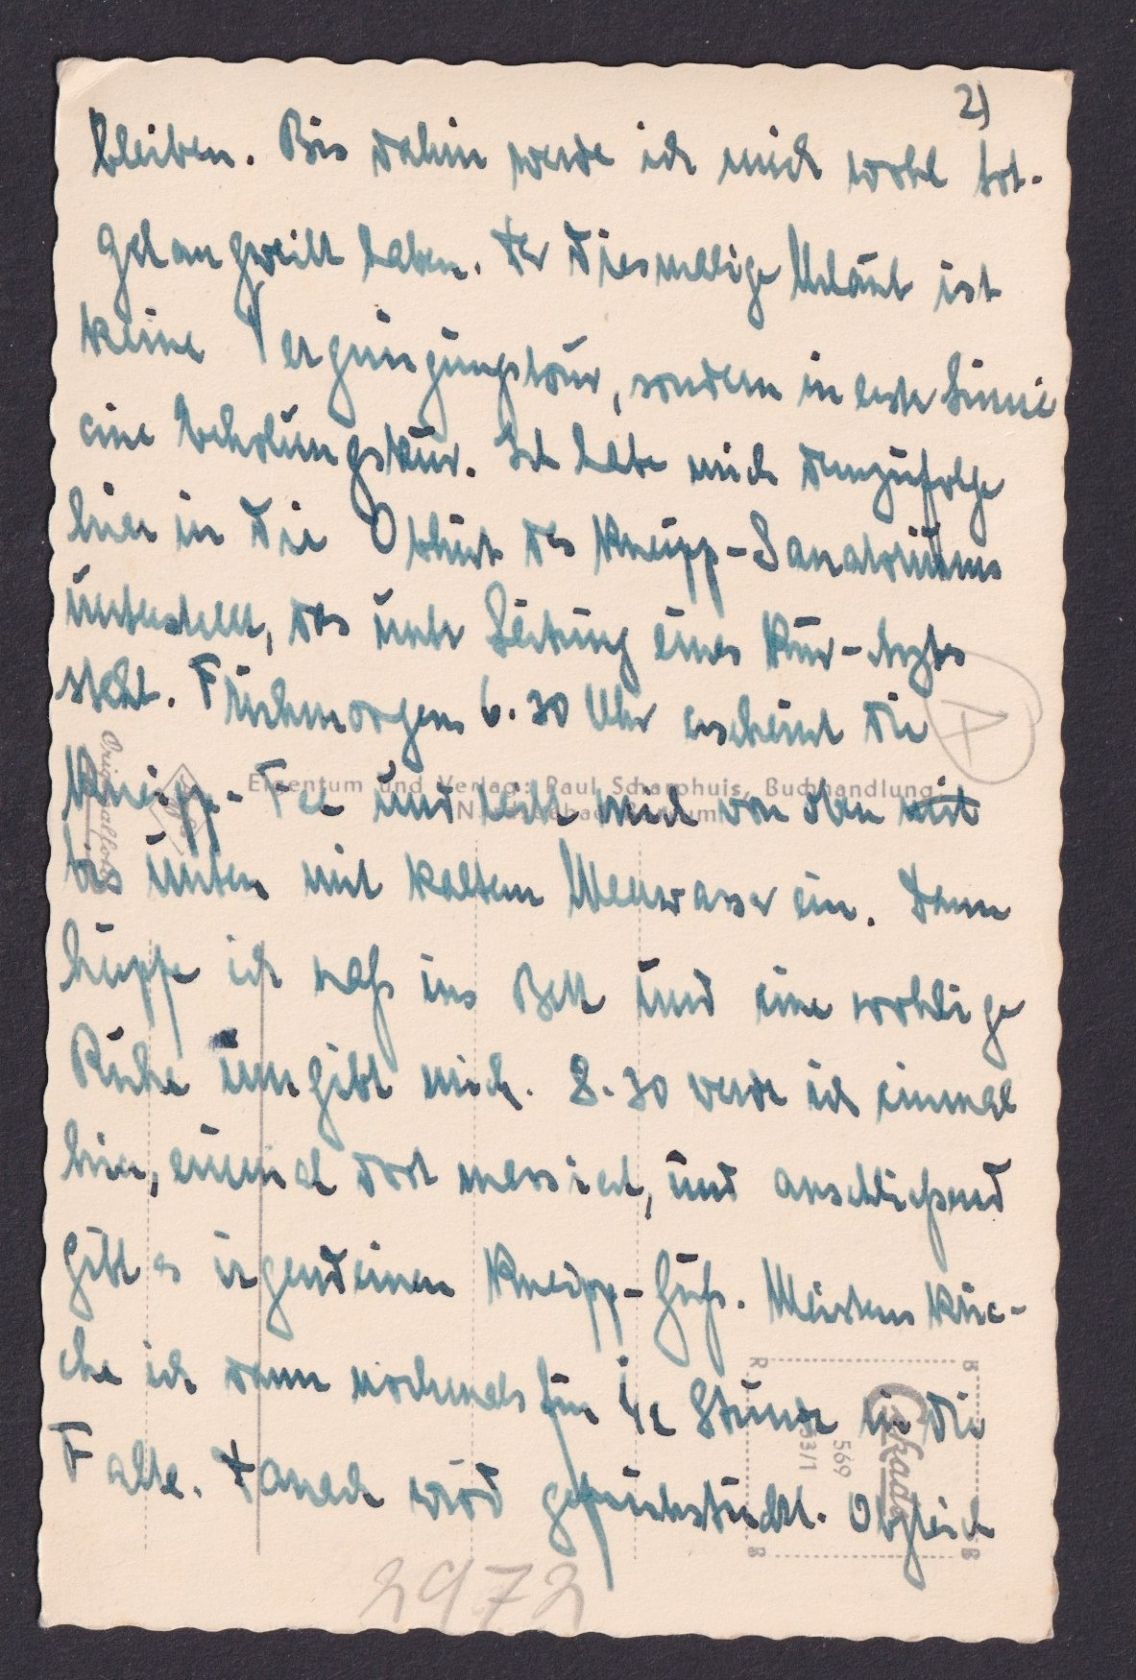 2)
bleiben. Bis dahin werde ich mich wohl tot-
gelangweilt haben. Der diesmalige Urlaub ist
keine Vergnügungstour, sondern in erster Linie
eine Erholungskur. Ich habe mich demzufolge
hier in die Obhut des Kneipp-Sanatoriums
unterstellt, das unter Leitung eines Kur-Arztes
steht. Frühmorgens 6.30 Uhr erscheint die
Kneipp-Fee und reibt mich von oben mit
bis unten mit kaltem Meerwasser ein. Dann
hüpfe ich naß ins Bett und eine wohlige
Ruhe umgibt mich. 8.30 werde ich einmal
hier, einmal dort massiert, und anschließend
gibt es irgendeinen Kneipp-Guß. Meistens krie-
che ich dann nochmals für 1/2 Stunde in die
Falle. Danach wird gefrühstückt. Obgleich
Eigentum und Verlag: Paul Scharphuis, Buchhandlung
Originalfoto
Cekade
569
53/1
R
B
B
B
A
2972